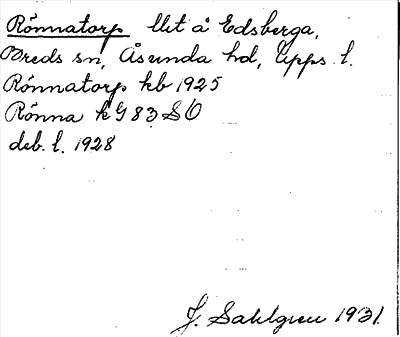 Rönnatorp llit å Edsberga,
Breds sn, Åsunda hd, Upps. l.
Rönnatorp kb 1925
Rönna k G 83 SÖ
deb. l. 1928
J. Sahlgren 1931.